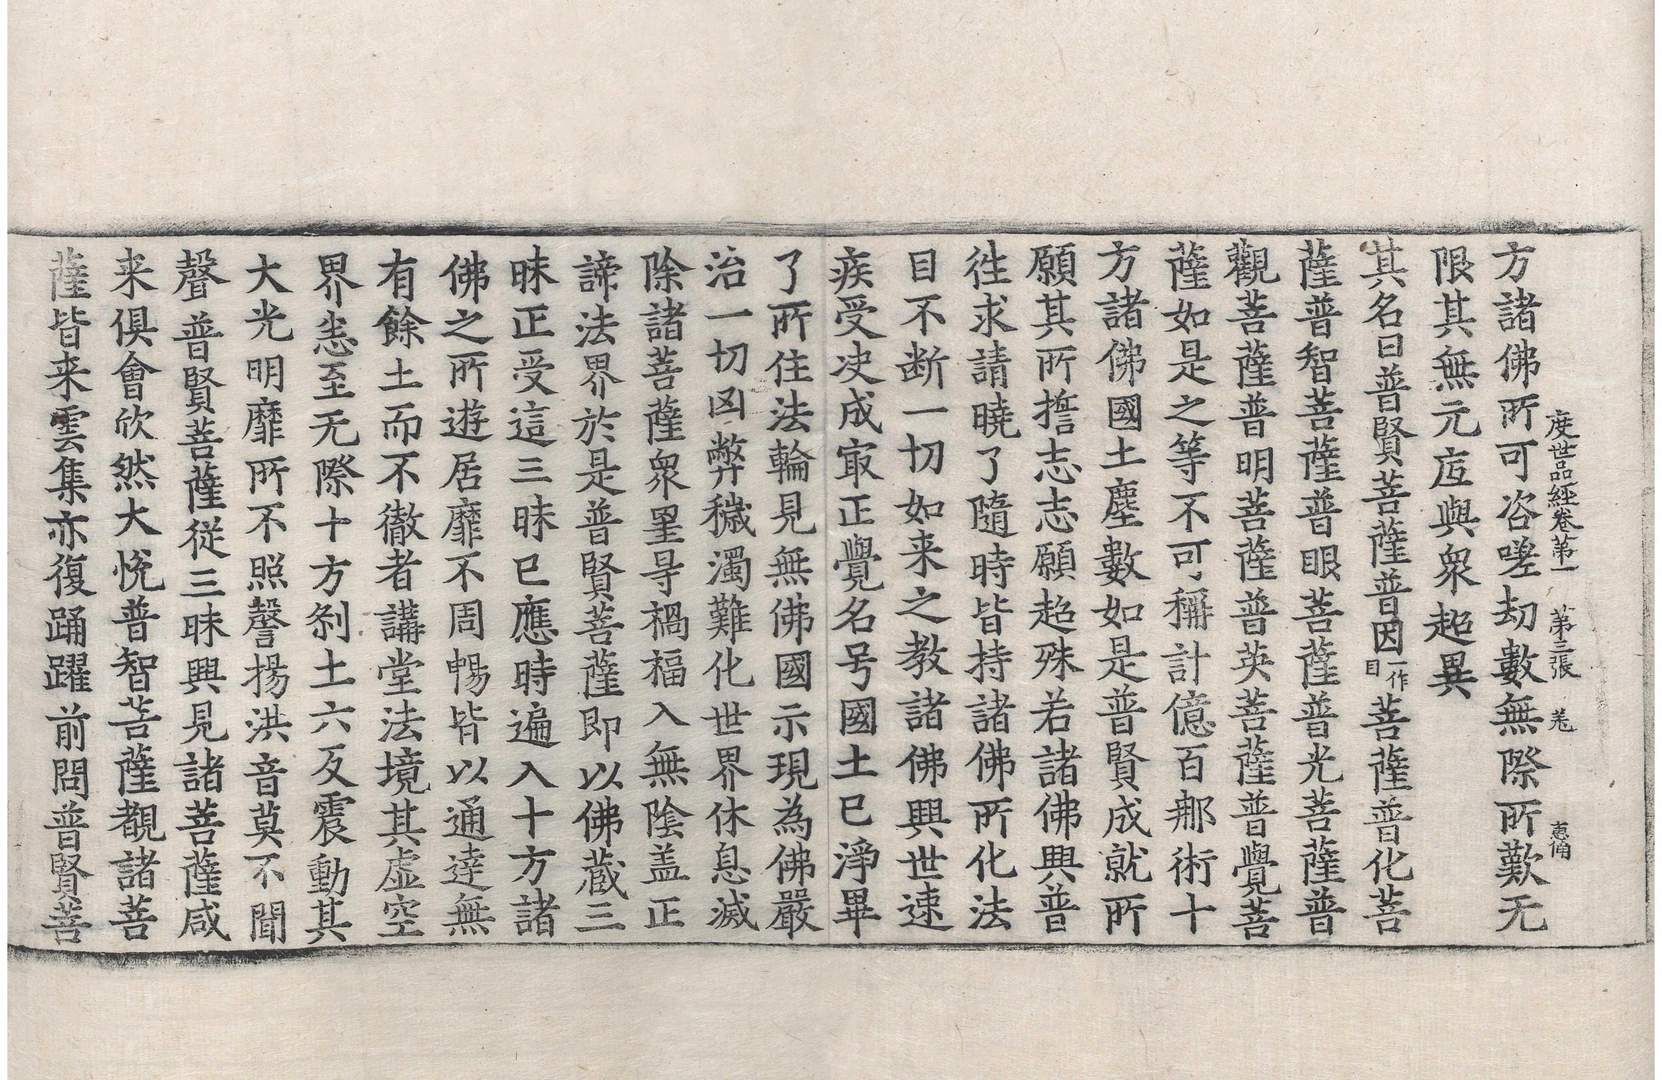 度世品經卷第一　第三張　羌　惠備
方諸佛所可咨嗟劫數無際所歎无
限其無元㡳與衆超異
其名曰普賢菩薩普因一作目菩薩普化菩
薩普智菩薩普眼菩薩普光菩薩普
觀菩薩普明菩薩普英菩薩普覺菩
薩如是之等不可稱計億百那術十
方諸佛國土塵數如是普賢成就所
願其所擔志志願超殊若諸佛興普
徃求請曉了隨時皆持諸佛所化法
目不断一切如来之教諸佛興世速
疾受决成㝡正覺名号國土已淨畢
了所住法輪見無佛國示現為佛嚴
治一切凶弊穢濁難化世界休息滅
除諸菩薩衆罣㝵禍福入無陰盖正
諦法界於是普賢菩薩即以佛藏三
昧正受這三昧已應時遍入十方諸
佛之所遊居靡不周暢皆以通達無
有餘土而不徹者講堂法境其虛空
界悉至无際十方刹土六反震動其
大光明靡所不照謦揚洪音莫不聞
聲普賢菩薩従三昧興見諸菩薩咸
来俱會欣然大恱普智菩薩覩諸菩
薩皆来雲集亦復踊躍前問普賢菩